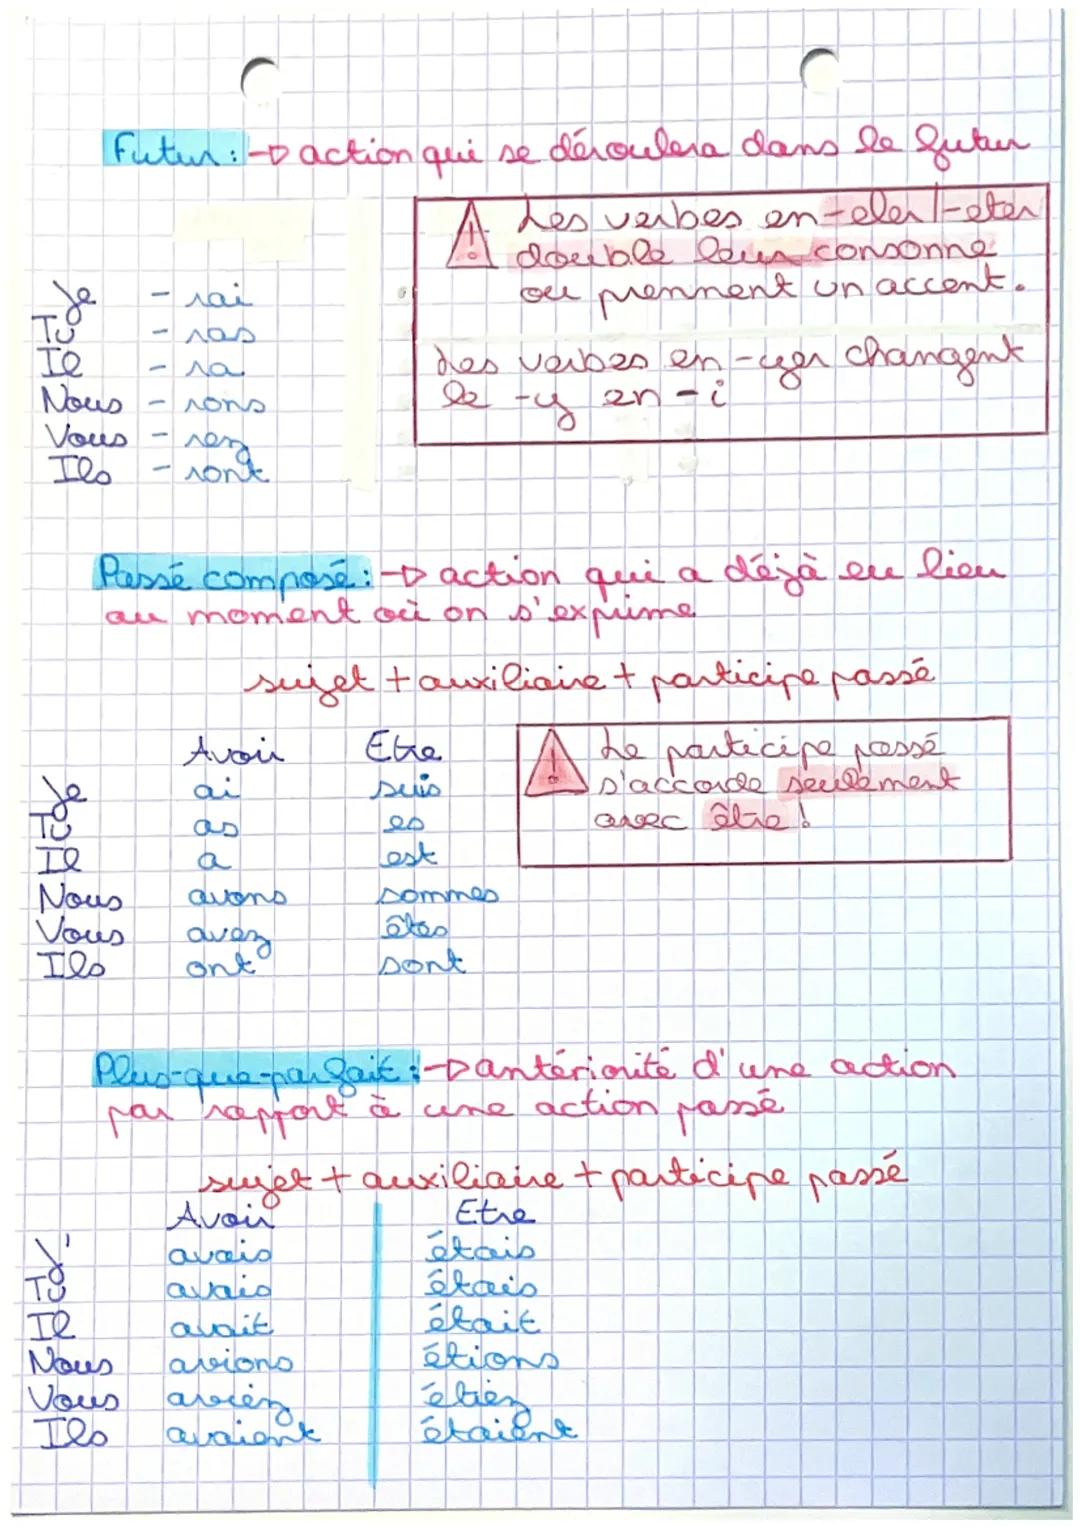 Futur : → action qui se déroulera dans le futur
⚠ Les verbes en -eler/-eter
double leur consonne
ou prennent un accent.
Les verbes en -yer changent
le -y en -i
Je - rai
Tu - ras
Il - ra
Nous - rons
Vous - rez
Ils - ront
Passé composé : → action qui a déjà eu lieu
au moment où on s'exprime
sujet + auxiliaire + participe passé
Avoir Etre
Je ai suis
Tu as es
Il a est
Nous avons sommes
Vous avez êtes
Ils ont sont
⚠ Le participe passé
s'accorde seulement
avec être !
Plus-que-parfait : → antériorité d'une action
par rapport à une action passé
sujet + auxiliaire + participe passé
Avoir Etre
J' avais étais
Tu avais étais
Il avait était
Nous avions étions
Vous aviez étiez
Ils avaient étaient